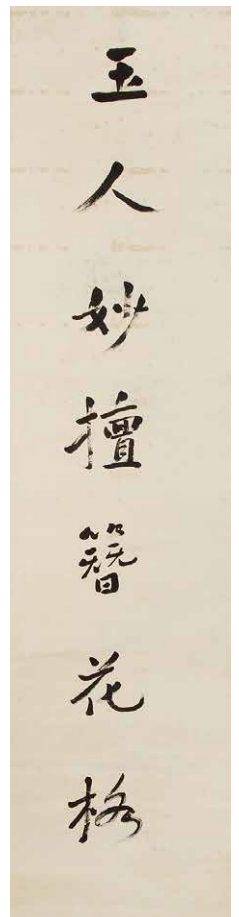 玉人妙擅簪花格